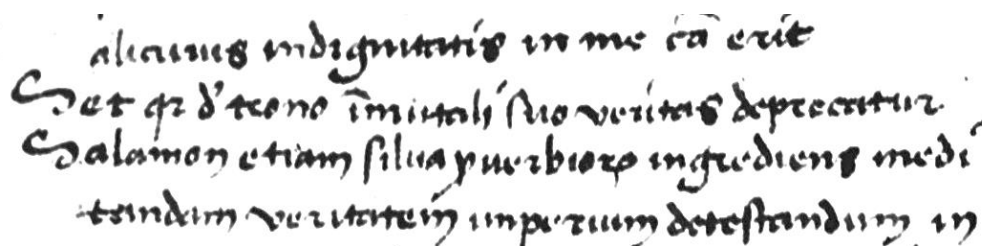 alicuius indignitatis in me cā erit
Set qr d' trono īmutali suo veritas deprecatur
Salamon etiam silua ꝓuerbioꝝ ingrediens medi
tandam veritatem imperium detestandum in